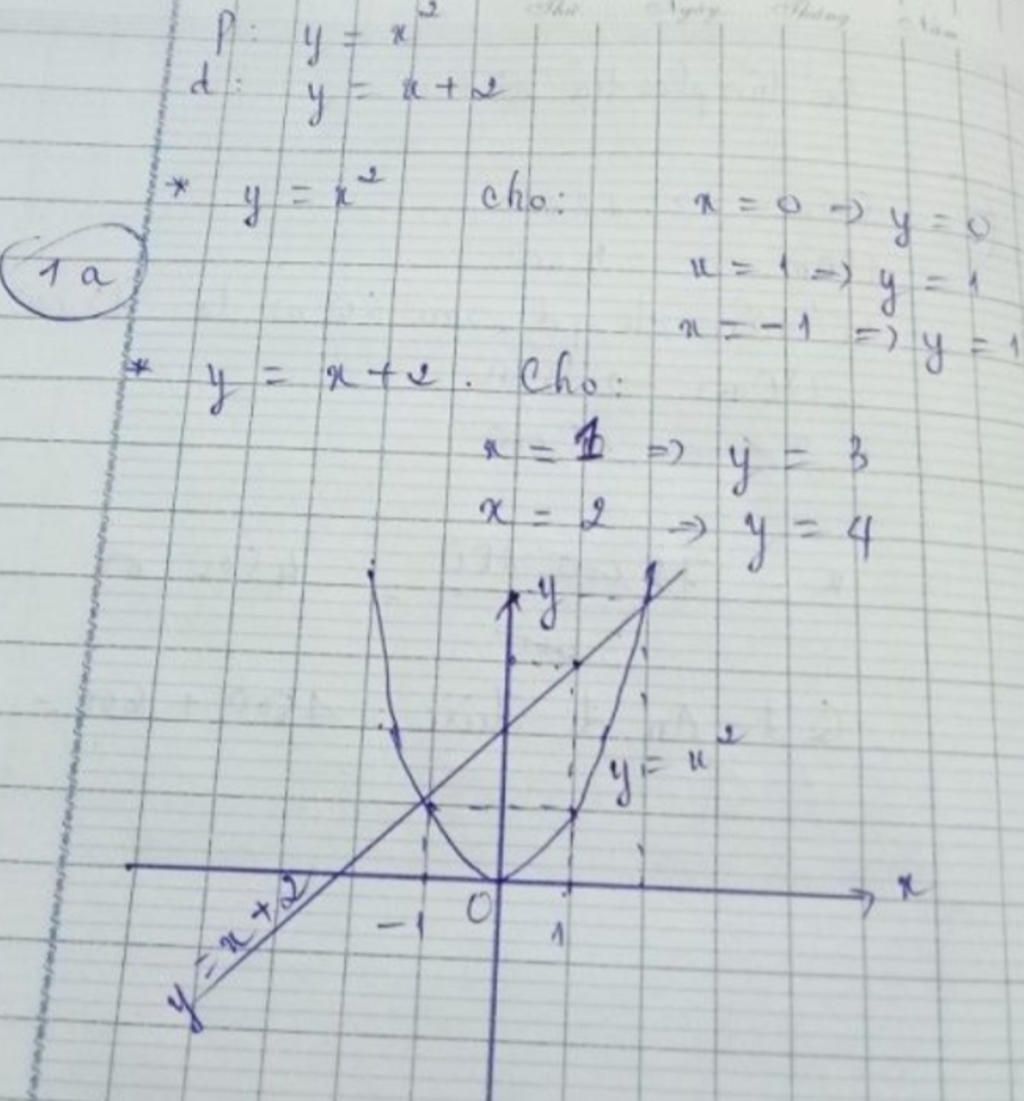 Thứ Ngày Tháng Năm
P: y = x²
d: y = x + 2
* y = x² Cho: x = 0 => y = 0
1a
x = 1 => y = 1
x = -1 => y = 1
* y = x + 2. Cho:
x = 1 => y = 3
x = 2 => y = 4
y
y = x²
x
O
-1
1
y = x + 2